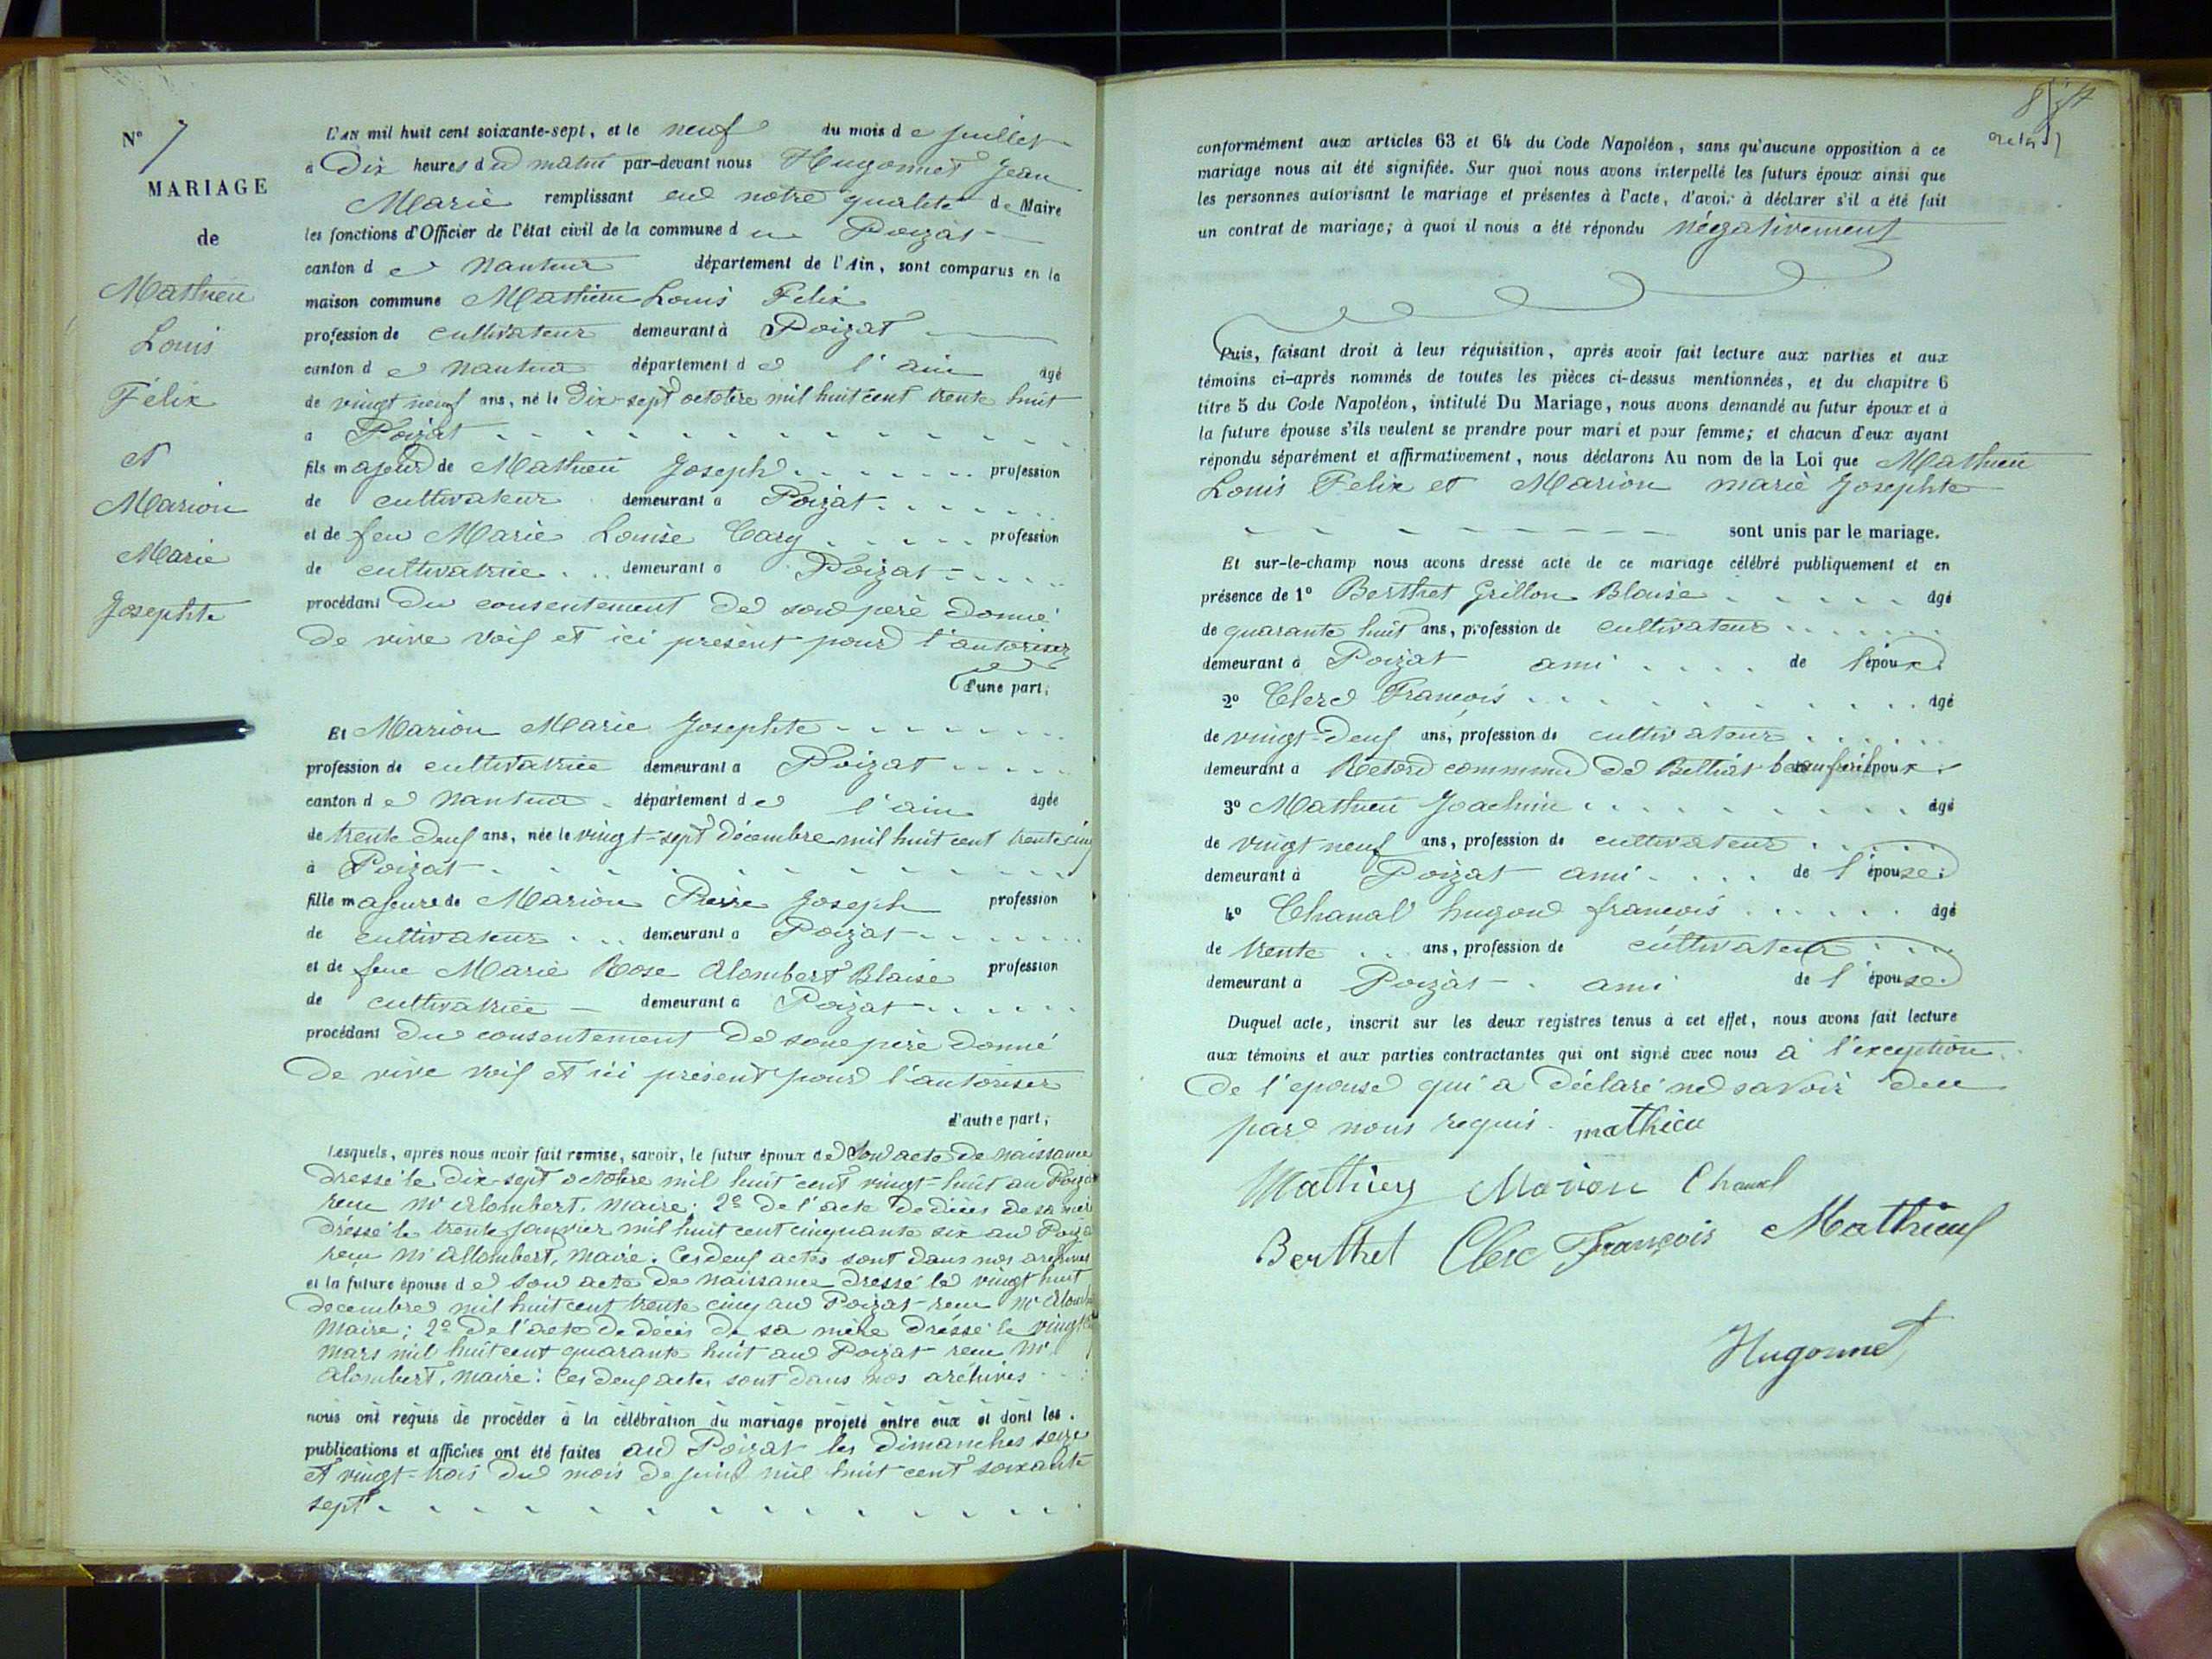 N° 7
MARIAGE
de
Mathieu
Louis
Félix
et
Marion
Marie
Josephte
L'AN mil huit cent soixante-sept, et le neuf du mois de Juillet
à Dix heures du matin par-devant nous Hugonnet Jean
Marie remplissant en notre qualité de Maire
les fonctions d'Officier de l'état civil de la commune du Poizat
canton de Nantua département de l'Ain, sont comparus en la
maison commune Mathieu Louis Felix
profession de cultivateur demeurant à Poizat
canton de Nantua département de l'ain âgé
de vingt neuf ans, né le Dix-sept octobre mil huit cent trente huit
à Poizat
fils majeur de Mathieu Joseph profession
de cultivateur demeurant à Poizat
et de feu Marie Louise Cary profession
de cultivatrice demeurant à Poizat
procédant Du consentement De son père Donné
De vive voix et ici présent pour l'autoriser
d'une part;
Et Marion Marie Josephte
profession de cultivatrice demeurant à Poizat
canton de Nantua département de l'ain âgée
de trente Deux ans, née le vingt-sept Décembre mil huit cent trente cinq
à Poizat
fille majeure de Marion Pierre Joseph profession
de cultivateur demeurant à Poizat
et de feue Marie Rose Alombert Blaise profession
de cultivatrice demeurant à Poizat
procédant Du consentement De son père Donné
De vive voix et ici présent pour l'autoriser
d'autre part;
Lesquels, après nous avoir fait remise, savoir, le futur époux de Son acte De naissance
Dressé le Dix-sept octobre mil huit cent vingt-huit au Poizat
reçu Mr Alombert, Maire; 2° De l'acte De décès De sa mère
Dréssé le trente Janvier mil huit cent cinquante six au Poizat
reçu Mr Allombert, Maire. Ces deux actes sont Dans nos archives
et la future épouse de son acte De naissance Dressé le vingt huit
Decembre mil huit cent trente cinq au Poizat reçu Mr
Maire; 2° De l'acte De décès De sa mère Dréssé le
mars mil huit cent quarante huit au Poizat reçu Mr
Alombert, Maire: Ces Deux actes sont Dans nos archives
nous ont requis de procéder à la célébration du mariage projeté entre eux et dont les
publications et affiches ont été faites au Poizat les Dimanches seize
et vingt-trois Du mois De Juin mil huit cent soixante
sept
conformément aux articles 63 et 64 du Code Napoléon, sans qu'aucune opposition à ce
mariage nous ait été signifiée. Sur quoi nous avons interpellé les futurs époux ainsi que
les personnes autorisant le mariage et présentes à l'acte, d'avoir à déclarer s'il a été fait
un contrat de mariage; à quoi il nous a été répondu négativement
Puis, faisant droit à leur réquisition, après avoir fait lecture aux parties et aux
témoins ci-après nommés de toutes les pièces ci-dessus mentionnées, et du chapitre 6
titre 5 du Code Napoléon, intitulé Du Mariage, nous avons demandé au futur époux et à
la future épouse s'ils veulent se prendre pour mari et pour femme; et chacun d'eux ayant
répondu séparément et affirmativement, nous déclarons Au nom de la Loi que Mathieu
Louis Felix et Marion marie Josephte
sont unis par le mariage.
Et sur-le-champ nous avons dressé acte de ce mariage célébré publiquement et en
présence de 1° Berthet Grillon Blaise âgé
de quarante huit ans, profession de cultivateur
demeurant à Poizat ami de l'époux
2° Clerc François âgé
de vingt-Deux ans, profession de cultivateur
demeurant à Retord commune De Billiat beau frère époux
3° Mathieu Joachim âgé
de vingt neuf ans, profession de cultivateur
demeurant à Poizat ami de l'épouse
4° Chanal hugon francois âgé
de trente ans, profession de cultivateur
demeurant à Poizat ami de l'épouse
Duquel acte, inscrit sur les deux registres tenus à cet effet, nous avons fait lecture
aux témoins et aux parties contractantes qui ont signé avec nous à l'exception
De l'épouse qui a Déclaré ne savoir Deu
par nous requis. mathieu
Mathieu Marion Chanal
Berthet Clerc François Mathieu
Hugonnet